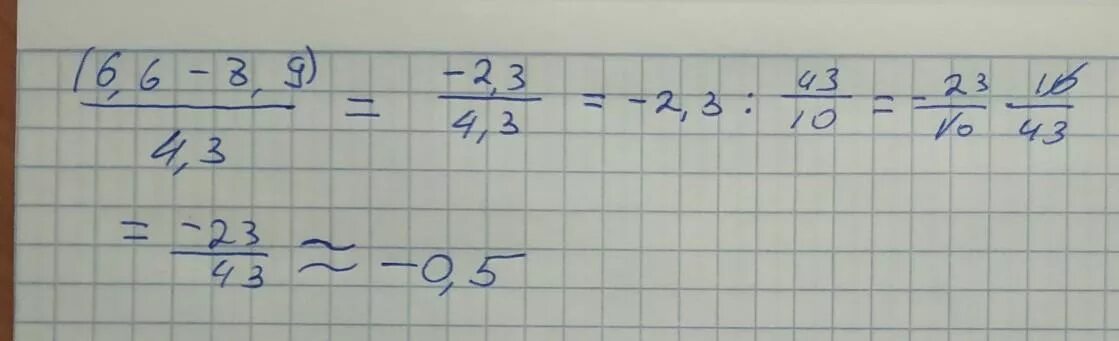 (6,6 - 8,9)/4,3 = -2,3/4,3 = -2,3 : 43/10 = -23/10 10/43
= -23/43 ≈ -0,5